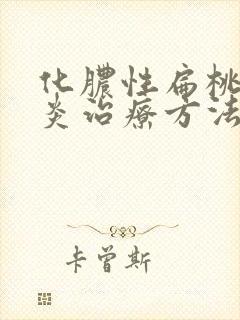 化膿性扁桃
炎治療方法
卡曾斯